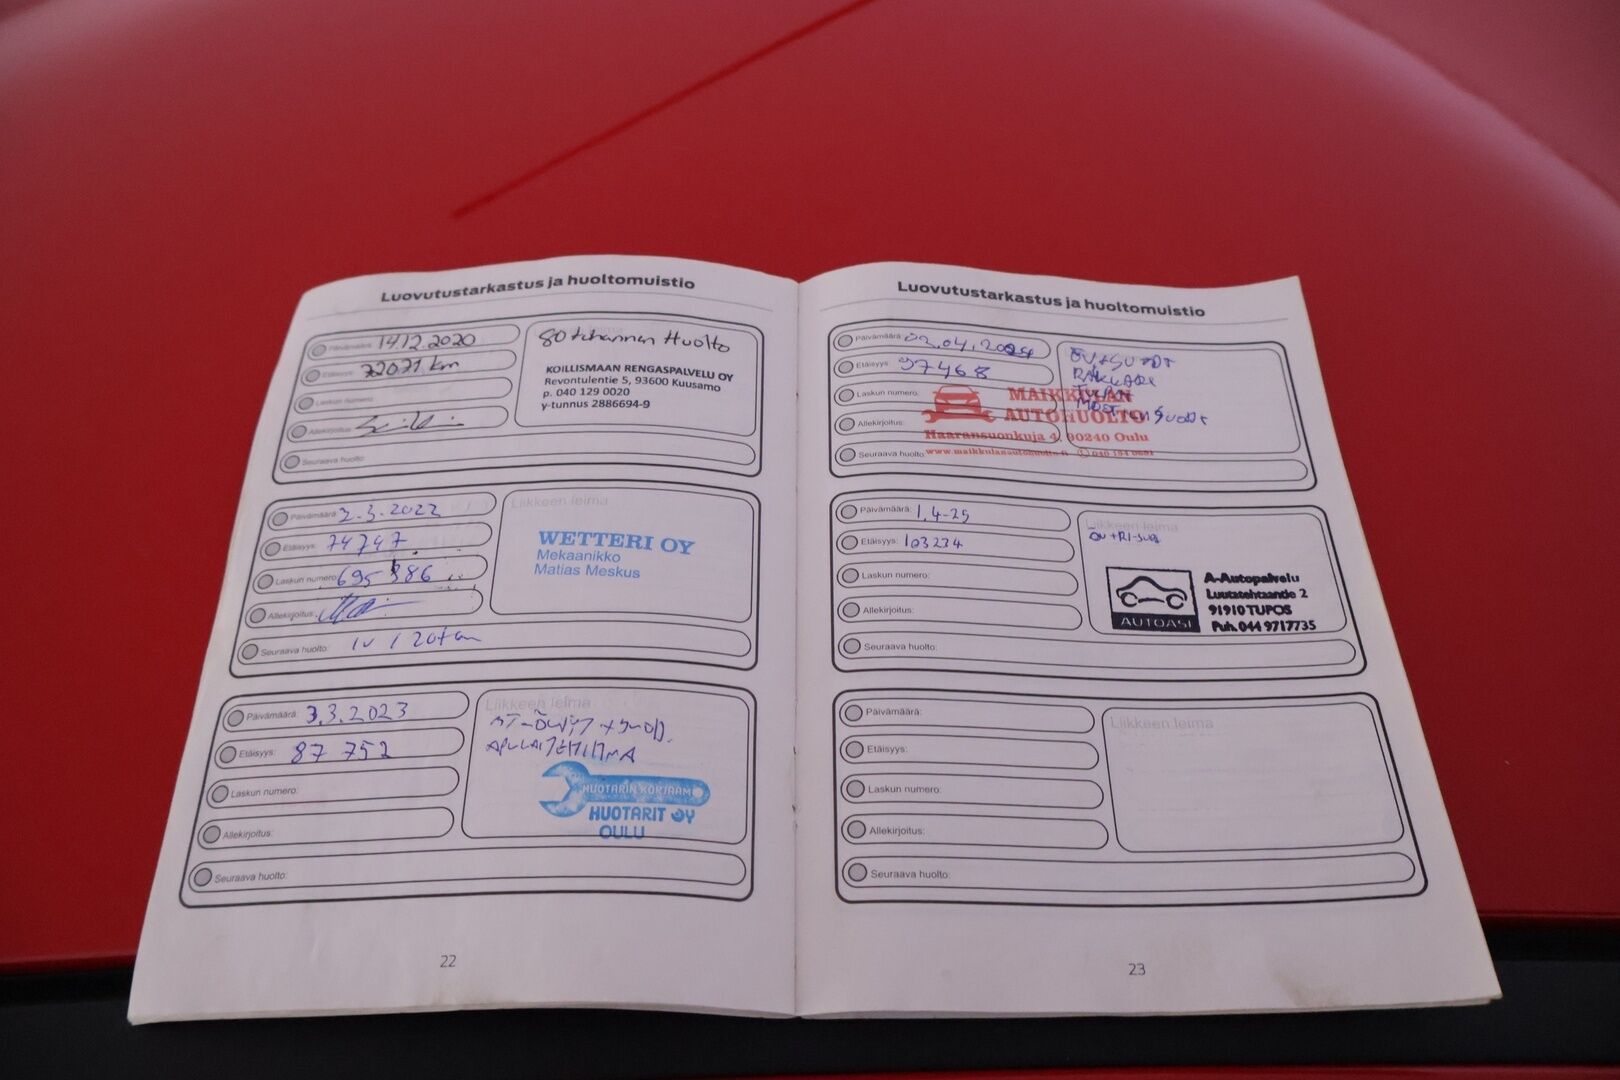 Luovutustarkastus ja huoltomuistio
Päivämäärä: 14.12.2020
Etäisyys: 72071 km
Laskun numero:
Allekirjoitus:
Seuraava huolto:
80 tuhannen Huolto
KOILLISMAAN RENGASPALVELU OY
Revontulentie 5, 93600 Kuusamo
p. 040 129 0020
y-tunnus 2886694-9
Päivämäärä: 2.3.2022
Etäisyys: 74747
Laskun numero:
Allekirjoitus:
Seuraava huolto:
Liikkeen leima
WETTERI OY
Mekaanikko
Matias Meskus
Päivämäärä: 3.3.2023
Etäisyys: 87 752
Laskun numero:
Allekirjoitus:
Seuraava huolto:
Liikkeen leima
HUOTARIN KORJAAMO
HUOTARIT OY
OULU
22
Luovutustarkastus ja huoltomuistio
Päivämäärä: 02.04.2024
Etäisyys: 97468
Laskun numero:
Allekirjoitus:
Seuraava huolto:
MAIKKULAN
AUTOHUOLTO
Haaransuonkuja 4, 90240 Oulu
www.maikkulanautohuolto.fi
Päivämäärä: 1.4-25
Etäisyys: 103234
Laskun numero:
Allekirjoitus:
Seuraava huolto:
Liikkeen leima
AUTOASI
A-Autopalvelu
Luutatehtaantie 2
91910 TUPOS
Puh. 044 9717735
Päivämäärä:
Etäisyys:
Laskun numero:
Allekirjoitus:
Seuraava huolto:
Liikkeen leima
23